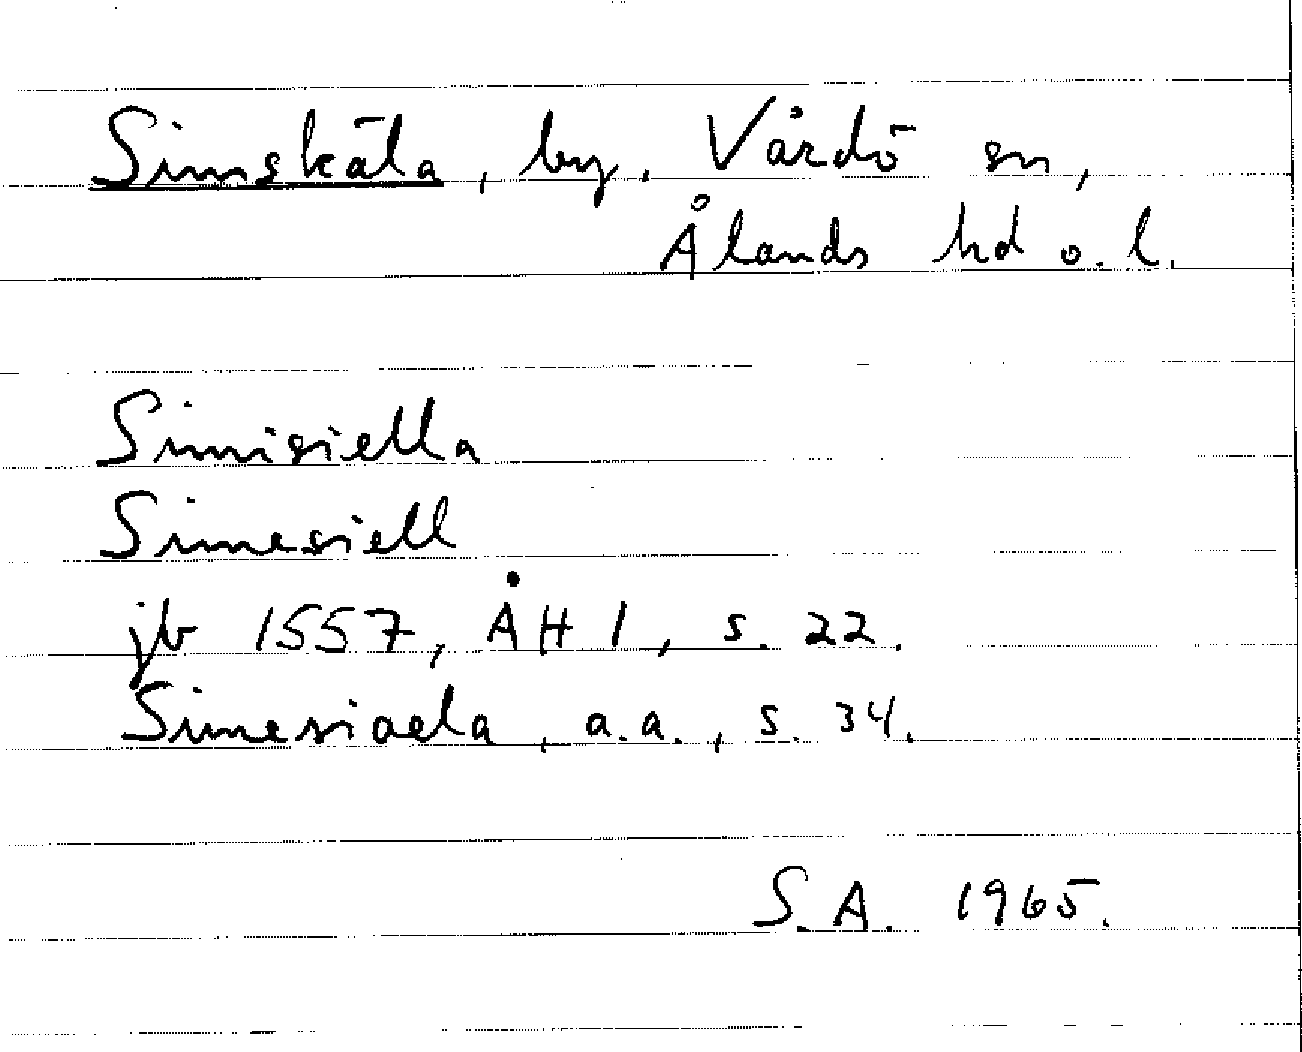 Simskäla, by. Vårdö sn,
Ålands hd o. l.
Simisiella
Simesiell
jb 1557, ÅH 1, s. 22.
Simesiaela, a.a., s. 34.
S.A. 1965.